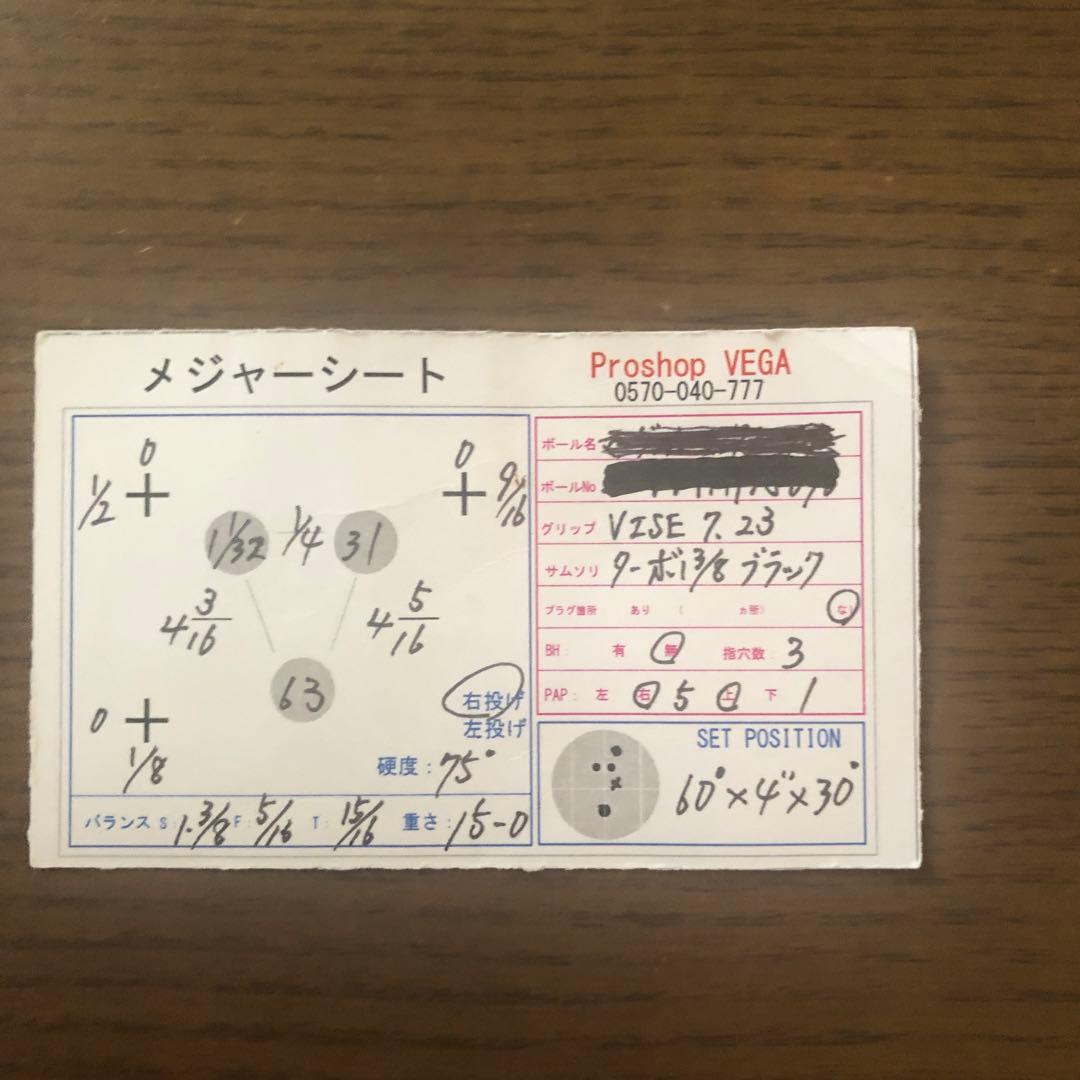 メジャーシート
Proshop VEGA
0570-040-777
0 0
1/2 9/16
1 1/32 1/4 31
4 3/16 4 5/16
63
0
1/8
右投げ
左投げ
硬度:75°
バランス S:1.3/8 F:5/16 T:15/16 重さ:15-0
ボール名
ボールNo
グリップ VISE 7.23
サムソリ ターボ1 3/8 ブラック
プラグ箇所 あり ( ヵ所) なし
BH: 有 無 指穴数:3
PAP: 左 右 5 上 下 1
SET POSITION
60°×4"×30°